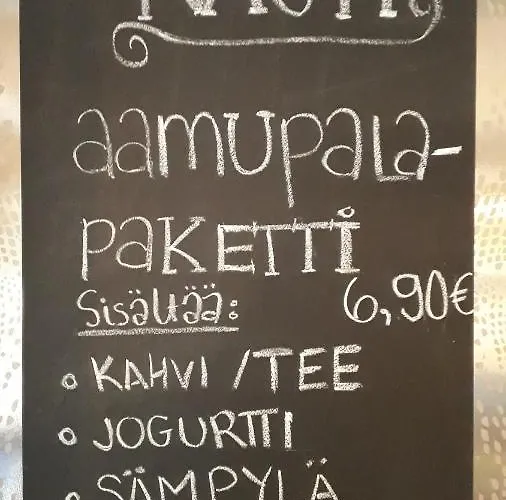 aamupala-
PAKETTI
Sisältää:
6,90€
KAHVI / TEE
JOGURTTI
SÄMPYLÄ